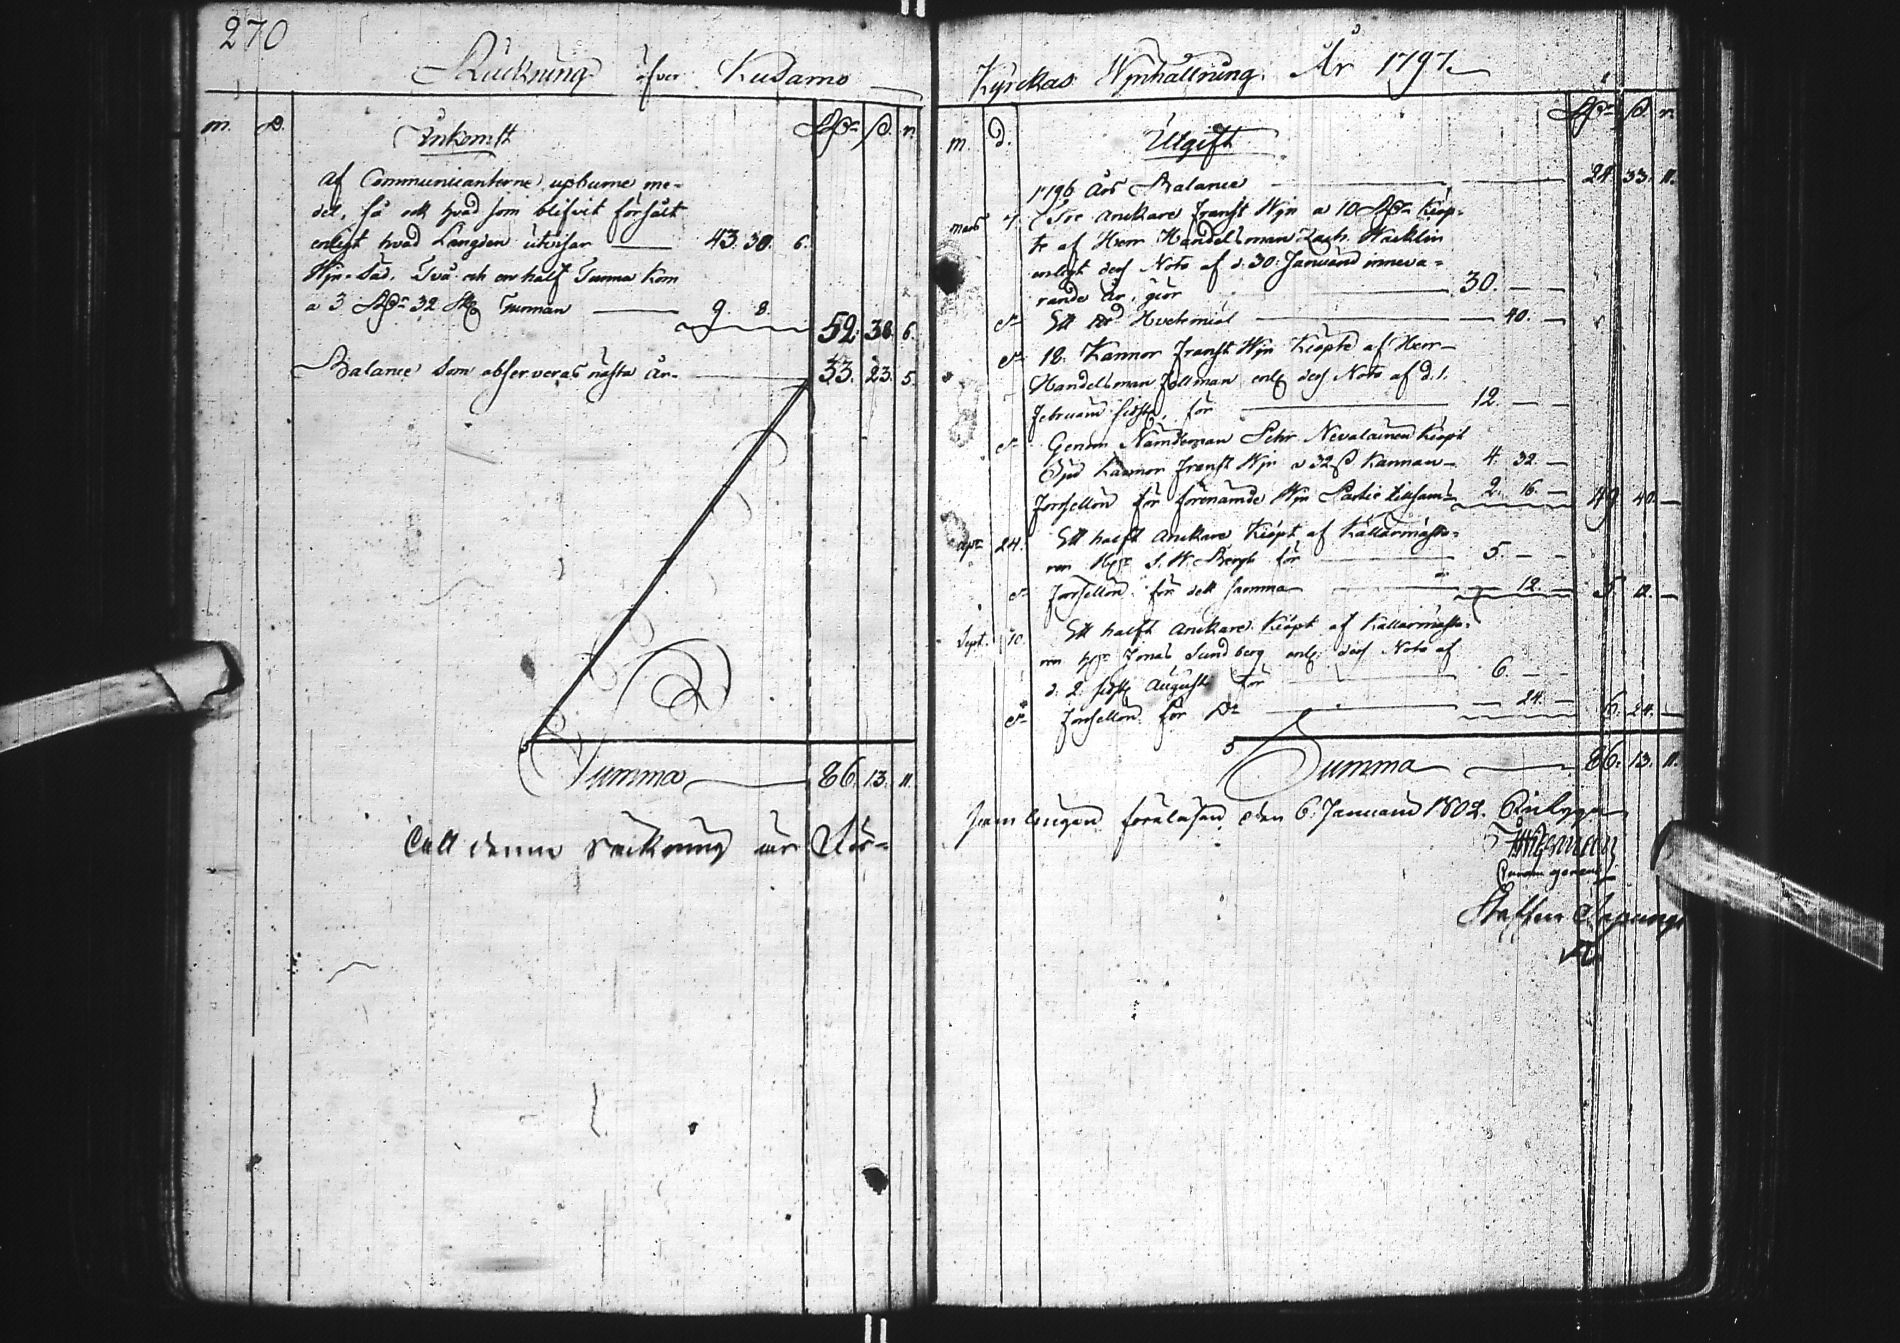 270
Räckning öfver Kusamo
m. d. Inkomst Rdr ß. r.
Af Communicanterne upburne me-
del, så ock hvad som blifvit försålt
enligt hvad Längden utvisar 43. 30. 6.
Wjn-Säd, Två och en half Tunna Korn
a 3 Rdr 32 sk Tunnan 9. 8.
52. 38. 6.
Balance som observeras nästa år 33. 23. 5.
Summa 86. 13. 11.
Att denna räckning är för-
Kyrckas Wjnhållning. År 1797.
m. d. Utgift Rdr ß. r.
1796 Års Balance 24. 33. 11.
mars 7. Tre Anckare Franst Wjn a 10 Rdr Kiöp-
te af Herr Handelsman Zach. Wacklin
enligt dess Nota af d. 30 Januarii inneva-
rande År, giör 30. — —
do Ett Hvetemiöl — 40. —
do 18. Kannor Franst Wjn Kiöpte af Herr
Handelsman Zellman enl dess Nota af d. 1.
Februarii sidstl, för 12. — —
do Genom Nämdeman Petr Nevalainen Kiöpt
Sju Kannor Franst Wjn a 32 ß Kannan 4. 32. —
Forsellön för förenämde Wjn Partie tillsam 2. 16. — 49 40. —
Apr 24. Ett halft Anckare Kiöpt af Källarmästa-
ren Herr S. W. Bergh för 5. — —
do Forsellön för dett samma — 12. — 5. 12. —
Sept. 10. Ett halft Anckare Kiöpt af Källarmästa-
ren Herr Jonas Sundberg enl. dess Nota af
d. 2. sidstl Augusti för 6. — —
do Forsellön för Do — 24. — 6. 24. —
Summa 86. 13. 11.
församlingen föreläsen den 6 Januarii 1802.
Staffan